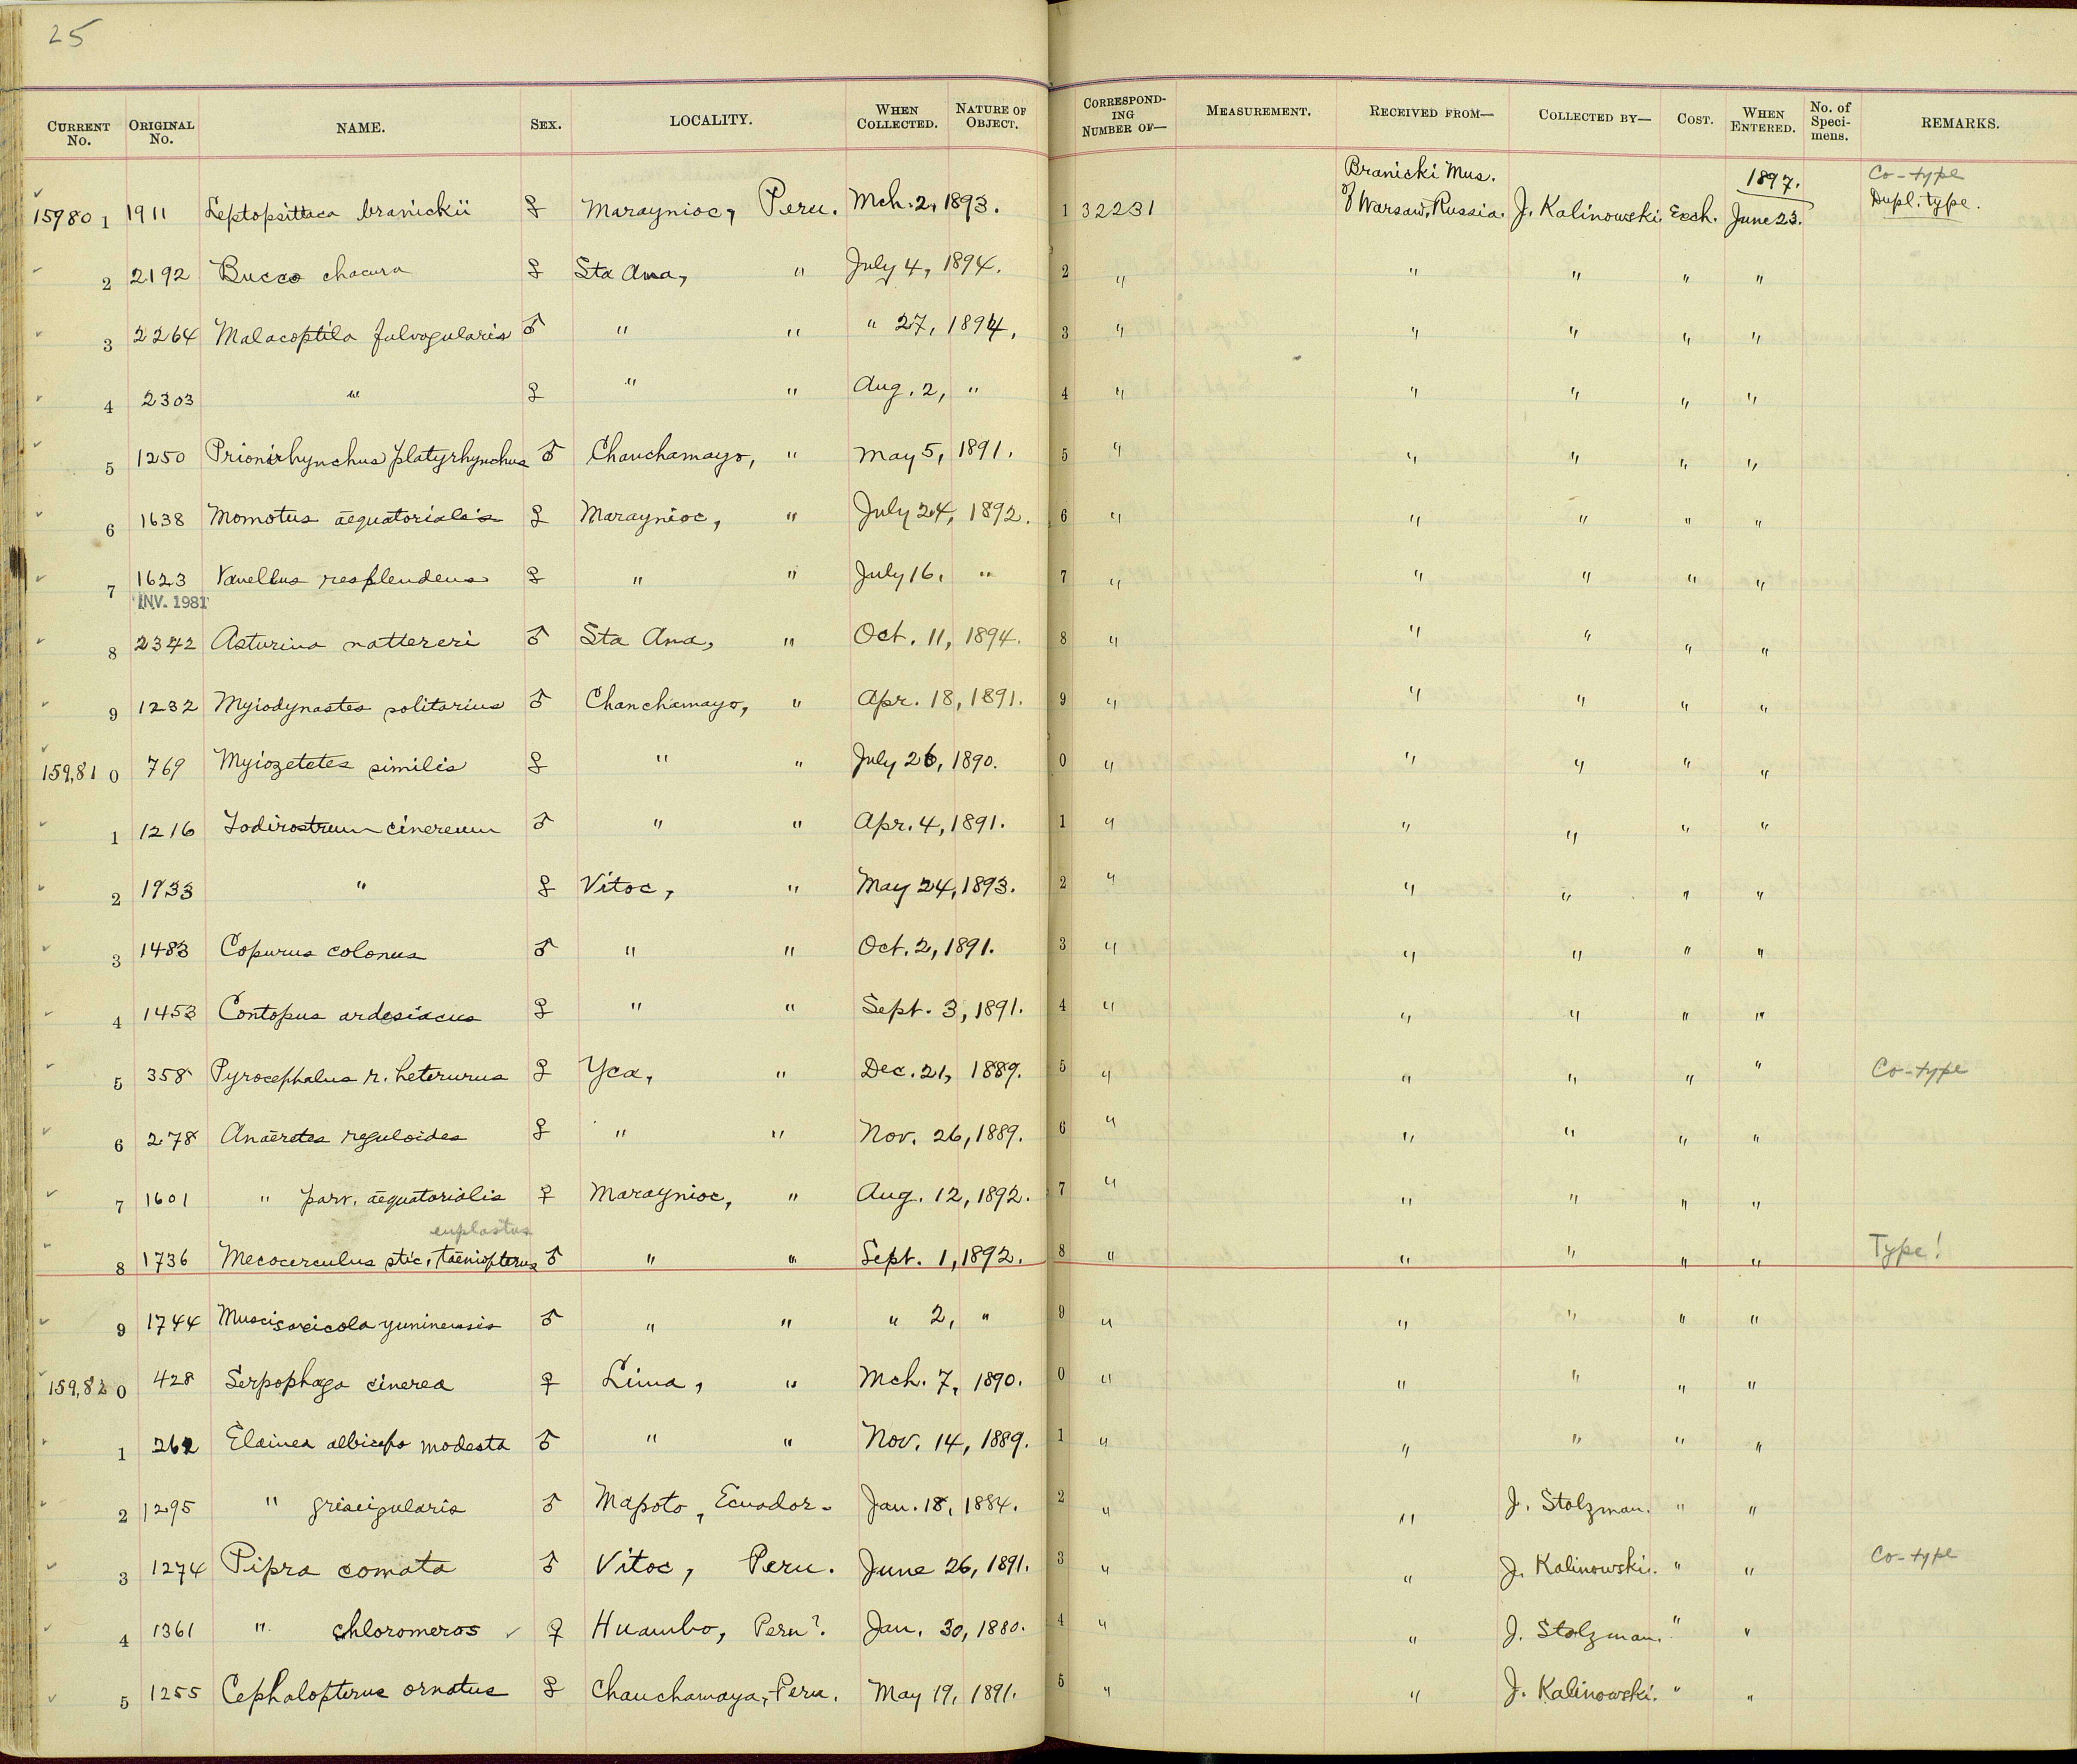 25
CURRENT No. ORIGINAL No. NAME. SEX. LOCALITY. WHEN COLLECTED. NATURE OF OBJECT. CORRESPONDING NUMBER OF— MEASUREMENT. RECEIVED FROM— COLLECTED BY— COST. WHEN ENTERED. No. of Specimens. REMARKS.
Branicki Mus. 1897. Co-type
15980 1 1911 Leptopsittaca branickii ♀ Maraynioc, Peru. Mch. 2, 1893. 1 32231 of Warsaw, Russia. J. Kalinowski. Exch. June 23. Dupl. type.
2 2192 Bucco chacuru ♀ Sta Ana, " July 4, 1894. 2 " " " " "
3 2264 Malacoptila fulvogularis ♂ " " " 27, 1894, 3 " " " " "
4 2303 " ♀ " " Aug. 2, " 4 " " " " "
5 1250 Prionirhynchus platyrhynchus ♂ Chanchamayo, " May 5, 1891. 5 " " " " "
6 1638 Momotus aequatorialis ♀ Maraynioc, " July 24, 1892. 6 " " " " "
7 1623 Vanellus resplendens ♀ " " July 16, " 7 " " " " "
INV. 1981
8 2342 Asturina nattereri ♂ Sta Ana, " Oct. 11, 1894. 8 " " " " "
9 1232 Myiodynastes solitarius ♂ Chanchamayo, " Apr. 18, 1891. 9 " " " " "
159,81 0 769 Myiozetetes similis ♀ " " July 26, 1890. 0 " " " " "
1 1216 Todirostrum cinereum ♂ " " Apr. 4, 1891. 1 " " " " "
2 1933 " ♀ Vitoc, " May 24, 1893. 2 " " " " "
3 1483 Copurus colonus ♂ " " Oct. 2, 1891. 3 " " " " "
4 1453 Contopus ardesiacus ♀ " " Sept. 3, 1891. 4 " " " " "
5 358 Pyrocephalus r. heterurus ♀ Yca, " Dec. 21, 1889. 5 " " " " " Co-type
6 278 Anaeretes reguloides ♀ " " Nov. 26, 1889. 6 " " " " "
7 1601 " parv. aequatorialis ♀ Maraynioc, " Aug. 12, 1892. 7 " " " " "
8 1736 Mecocerculus stic. taeniopterus ♂ " " Sept. 1, 1892. 8 " " " " " Type!
9 1744 Muscisaxicola yuninensis ♂ " " " 2, " 9 " " " " "
159,82 0 428 Serpophaga cinerea ♀ Lima, " Mch. 7, 1890. 0 " " " " "
1 262 Elainea albiceps modesta ♂ " " Nov. 14, 1889. 1 " " " " "
2 1295 " griseigularis ♂ Mapoto, Ecuador. Jan. 18, 1884. 2 " " J. Stolzman. " "
3 1274 Pipra comata ♂ Vitoc, Peru. June 26, 1891. 3 " " J. Kalinowski. " " Co-type
4 1361 " chloromeros ✓ ♀ Huambo, Peru? Jan. 30, 1880. 4 " " J. Stolzman. " "
5 1255 Cephalopterus ornatus ♀ Chanchamaya, Peru. May 19, 1891. 5 " " J. Kalinowski. " "